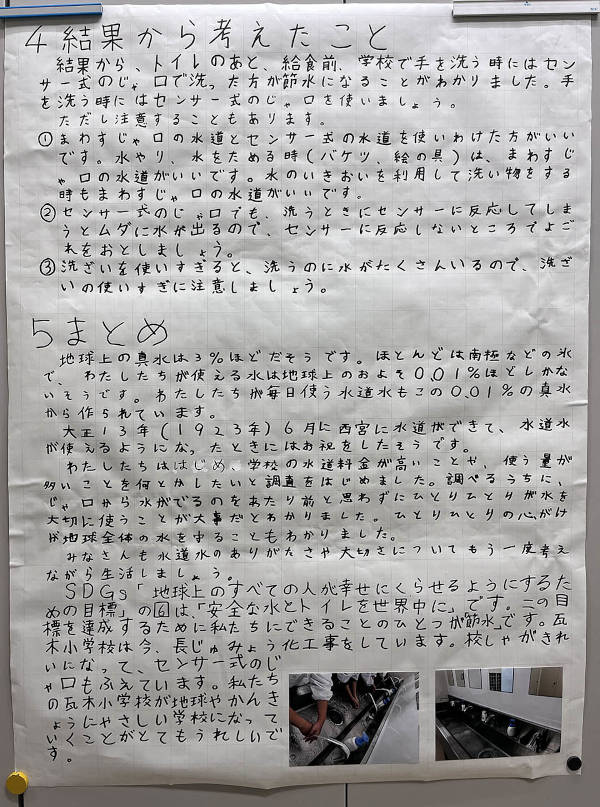 4 結果から考えたこと
結果から、トイレのあと、給食前、学校で手を洗う時にはセン
サー式のじゃ口で洗った方が節水になることがわかりました。手
を洗う時にはセンサー式のじゃ口を使いましょう。
ただし注意することもあります。
①まわすじゃ口の水道とセンサー式の水道を使いわけた方がいい
です。水やり、水をためる時(バケツ、絵の具)は、まわすじ
ゃ口の水道がいいです。水のいきおいを利用して洗い物をする
時もまわすじゃ口の水道がいいです。
②センサー式のじゃ口でも、洗うときにセンサーに反応してしま
うとムダに水が出るので、センサーに反応しないところでよご
れをおとしましょう。
③洗ざいを使いすぎると、洗うのに水がたくさんいるので、洗ざ
いの使いすぎに注意しましょう。
5 まとめ
地球上の真水は3%ほどだそうです。ほとんどは南極などの氷
で、わたしたちが使える水は地球上のおよそ0.01%ほどしかな
いそうです。わたしたちが毎日使う水道水もこの0.01%の真水
から作られています。
大正13年(1923年)6月に西宮に水道ができて、水道水
が使えるようになったときにはお祝をしたそうです。
わたしたちははじめ、学校の水道料金が高いことや、使う量が
多いことを何とかしたいと調査をはじめました。調べるうちに、
じゃ口から水がでるのをあたり前と思わずにひとりひとりが水を
大切に使うことが大事だとわかりました。ひとりひとりの心がけ
が地球全体の水を守ることもわかりました。
みなさんも水道水のありがたさや大切さについてもう一度考え
ながら生活しましょう。
SDGs「地球上のすべての人が幸せにくらせるようにするた
めの目標」の6は、「安全な水とトイレを世界中に」です。この目
標を達成するために私たちにできることのひとつが「節水」です。瓦
木小学校は今、長じゅみょう化工事をしています。校しゃがきれ
いになって、センサー式のじ
ゃ口もふえています。私たち
の瓦木小学校が地球やかんき
ょうにやさしい学校になって
いくことがとてもうれしいで
す。